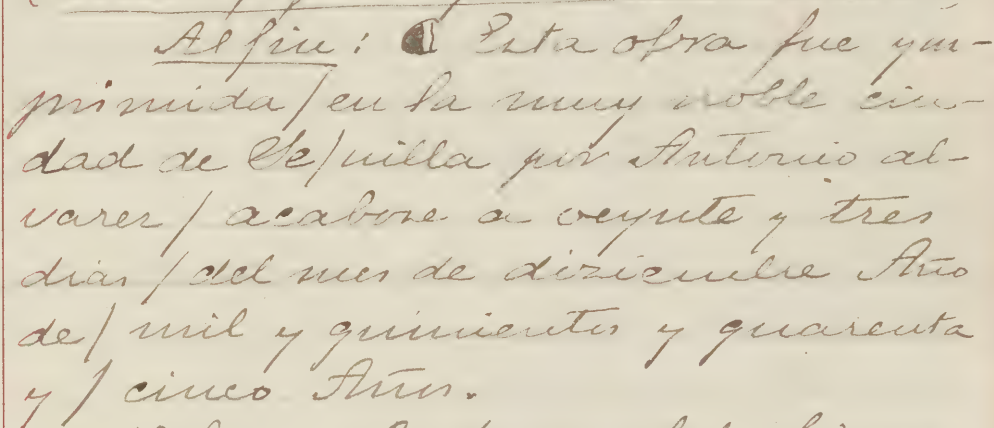 Al fin: Esta obra fue ym-
primida / en la muy noble ciu-
dad de Se / uilla por Antonio al-
varez / acabose a veynte y tres
dias / del mes de diziembre Año
de / mil y quinientos y quarenta
y / cinco Años.